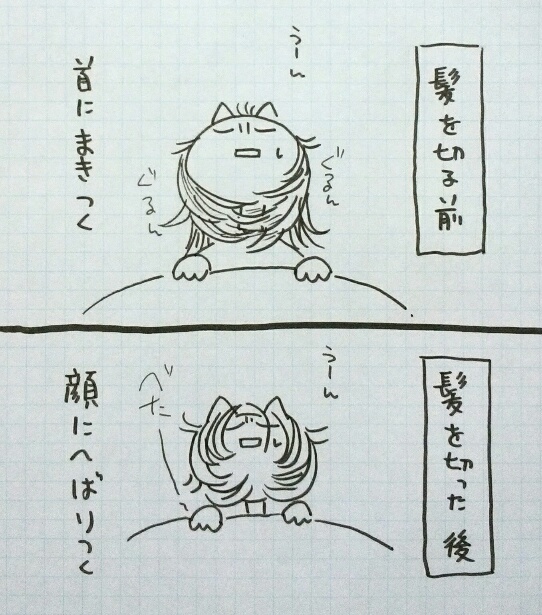 髪を切る前
うーん
ぐるん
ぐるん
首にまきつく
髪を切った後
うーん
べた
顔にへばりつく